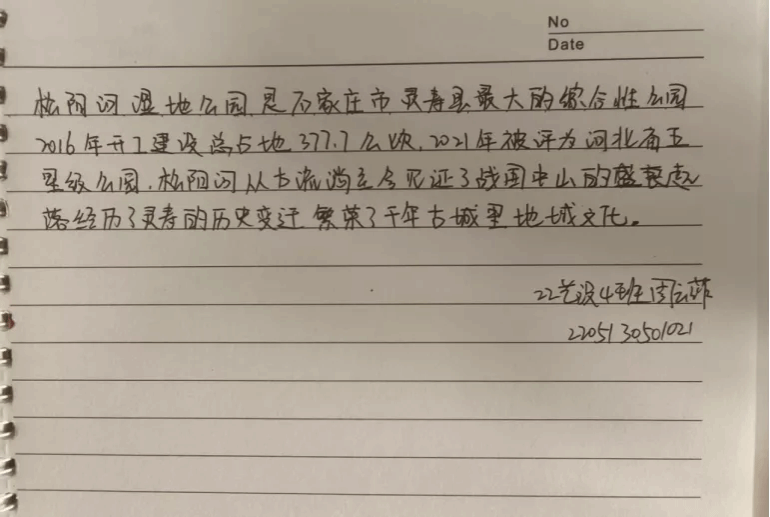 No
Date
松阳河湿地公园是石家庄市灵寿县最大的综合性公园
2016年开工建设总占地377.7公顷,2021年被评为河北省五
星级公园.松阳河从古流淌至今见证了战国中山的盛衰起
落经历了灵寿的历史变迁 繁荣了千年古城里地域文化。
22艺设4班周云菲
2205130501021